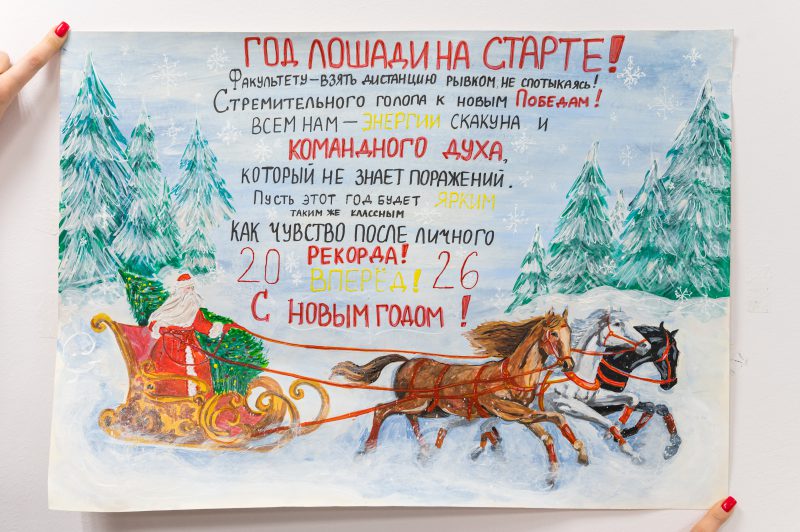 ГОД ЛОШАДИ НА СТАРТЕ!
ФАКУЛЬТЕТУ – ВЗЯТЬ ДИСТАНЦИЮ РЫВКОМ, НЕ СПОТЫКАЯСЬ!
СТРЕМИТЕЛЬНОГО ГОЛОПА К НОВЫМ ПОБЕДАМ!
ВСЕМ НАМ – ЭНЕРГИИ СКАКУНА И
КОМАНДНОГО ДУХА,
КОТОРЫЙ НЕ ЗНАЕТ ПОРАЖЕНИЙ.
ПУСТЬ ЭТОТ ГОД БУДЕТ ЯРКИМ
ТАКИМ ЖЕ КЛАССНЫМ
КАК ЧУВСТВО ПОСЛЕ ЛИЧНОГО
РЕКОРДА!
20 ВПЕРЁД! 26
С НОВЫМ ГОДОМ!